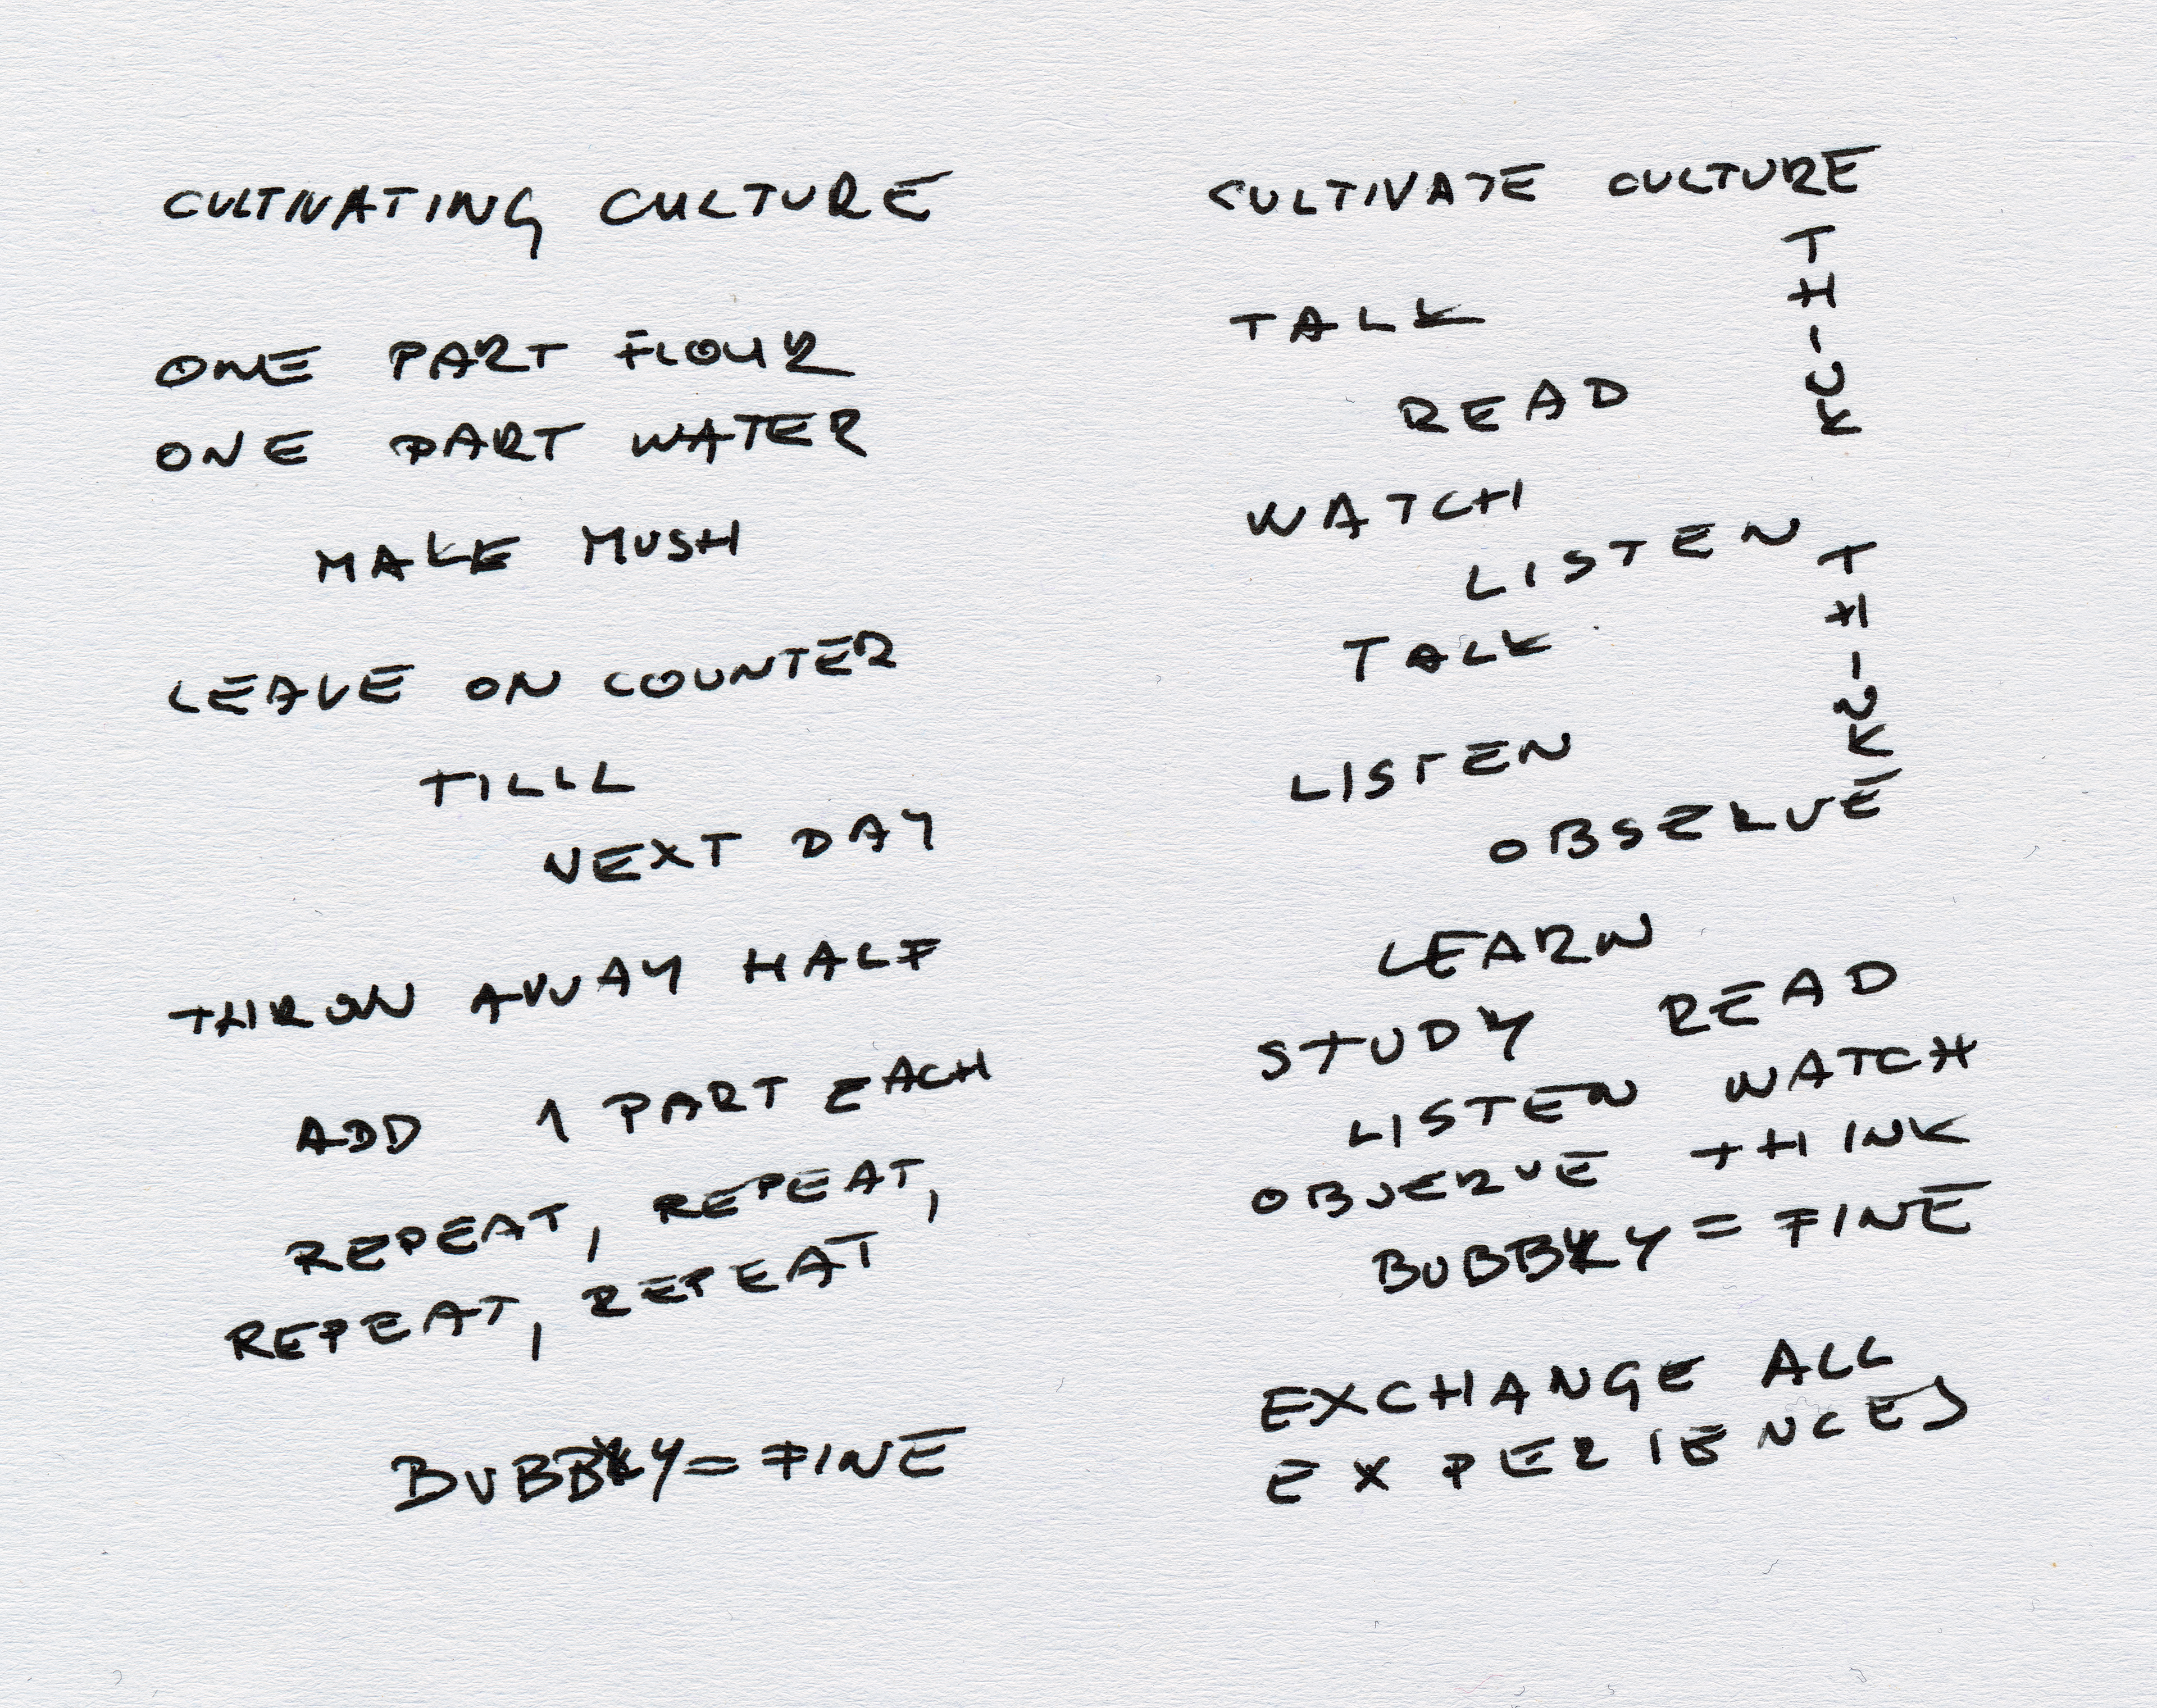 CULTIVATING CULTURE
ONE PART FLOUR
ONE PART WATER
MAKE MUSH
LEAVE ON COUNTER
TILLL
NEXT DAY
THROW AWAY HALF
ADD 1 PART EACH
REPEAT, REPEAT,
REPEAT, REPEAT
BUBBLY = FINE
CULTIVATE CULTURE
THINK
TALK
READ
WATCH
LISTEN
THINK
TALK
LISTEN
OBSERVE
LEARN
STUDY READ
LISTEN WATCH
OBSERVE THINK
BUBBLY = FINE
EXCHANGE ALL
EXPERIENCES